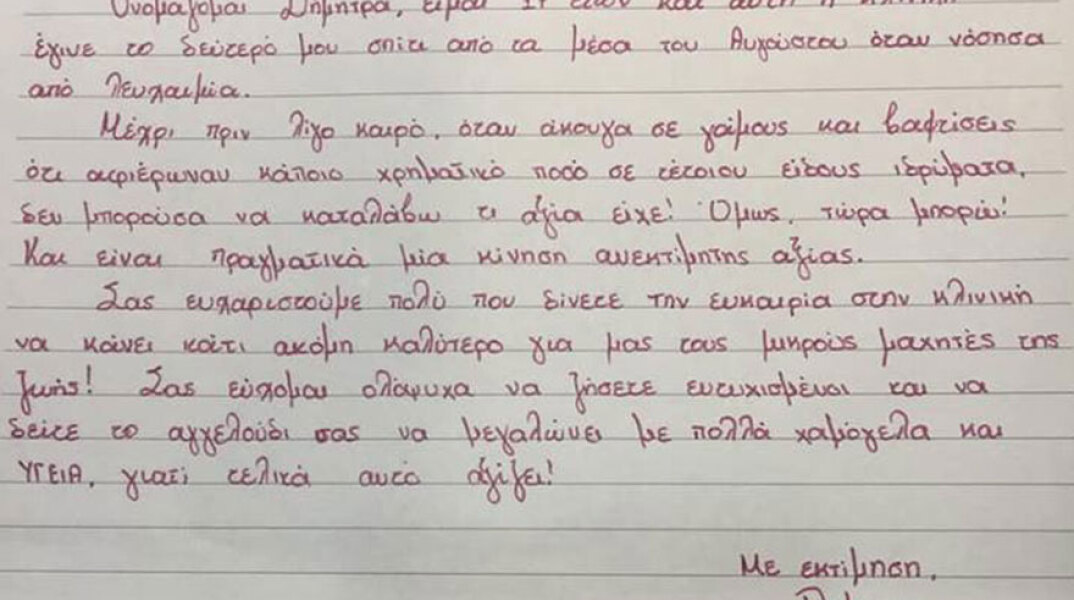 Ονομάζομαι Δήμητρα, είμαι ετών και αυτή η
έγινε το δεύτερό μου σπίτι από τα μέσα του Αυγούστου όταν νόσησα
από λευχαιμία.
Μέχρι πριν λίγο καιρό, όταν άκουγα σε γάμους και βαφτίσεις
ότι αφιέρωναν κάποιο χρηματικό ποσό σε τέτοιου είδους ιδρύματα,
δεν μπορούσα να καταλάβω τι αξία είχε! Όμως, τώρα μπορώ!
Και είναι πραγματικά μία κίνηση ανεκτίμητης αξίας.
Σας ευχαριστούμε πολύ που δίνετε την ευκαιρία στην κλινική
να κάνει κάτι ακόμη καλύτερο για μας τους μικρούς μαχητές της
ζωής! Σας εύχομαι ολόψυχα να ζήσετε ευτυχισμένοι και να
δείτε το αγγελούδι σας να μεγαλώνει με πολλά χαμόγελα και
ΥΓΕΙΑ, γιατί τελικά αυτό αξίζει!
Με εκτίμηση,